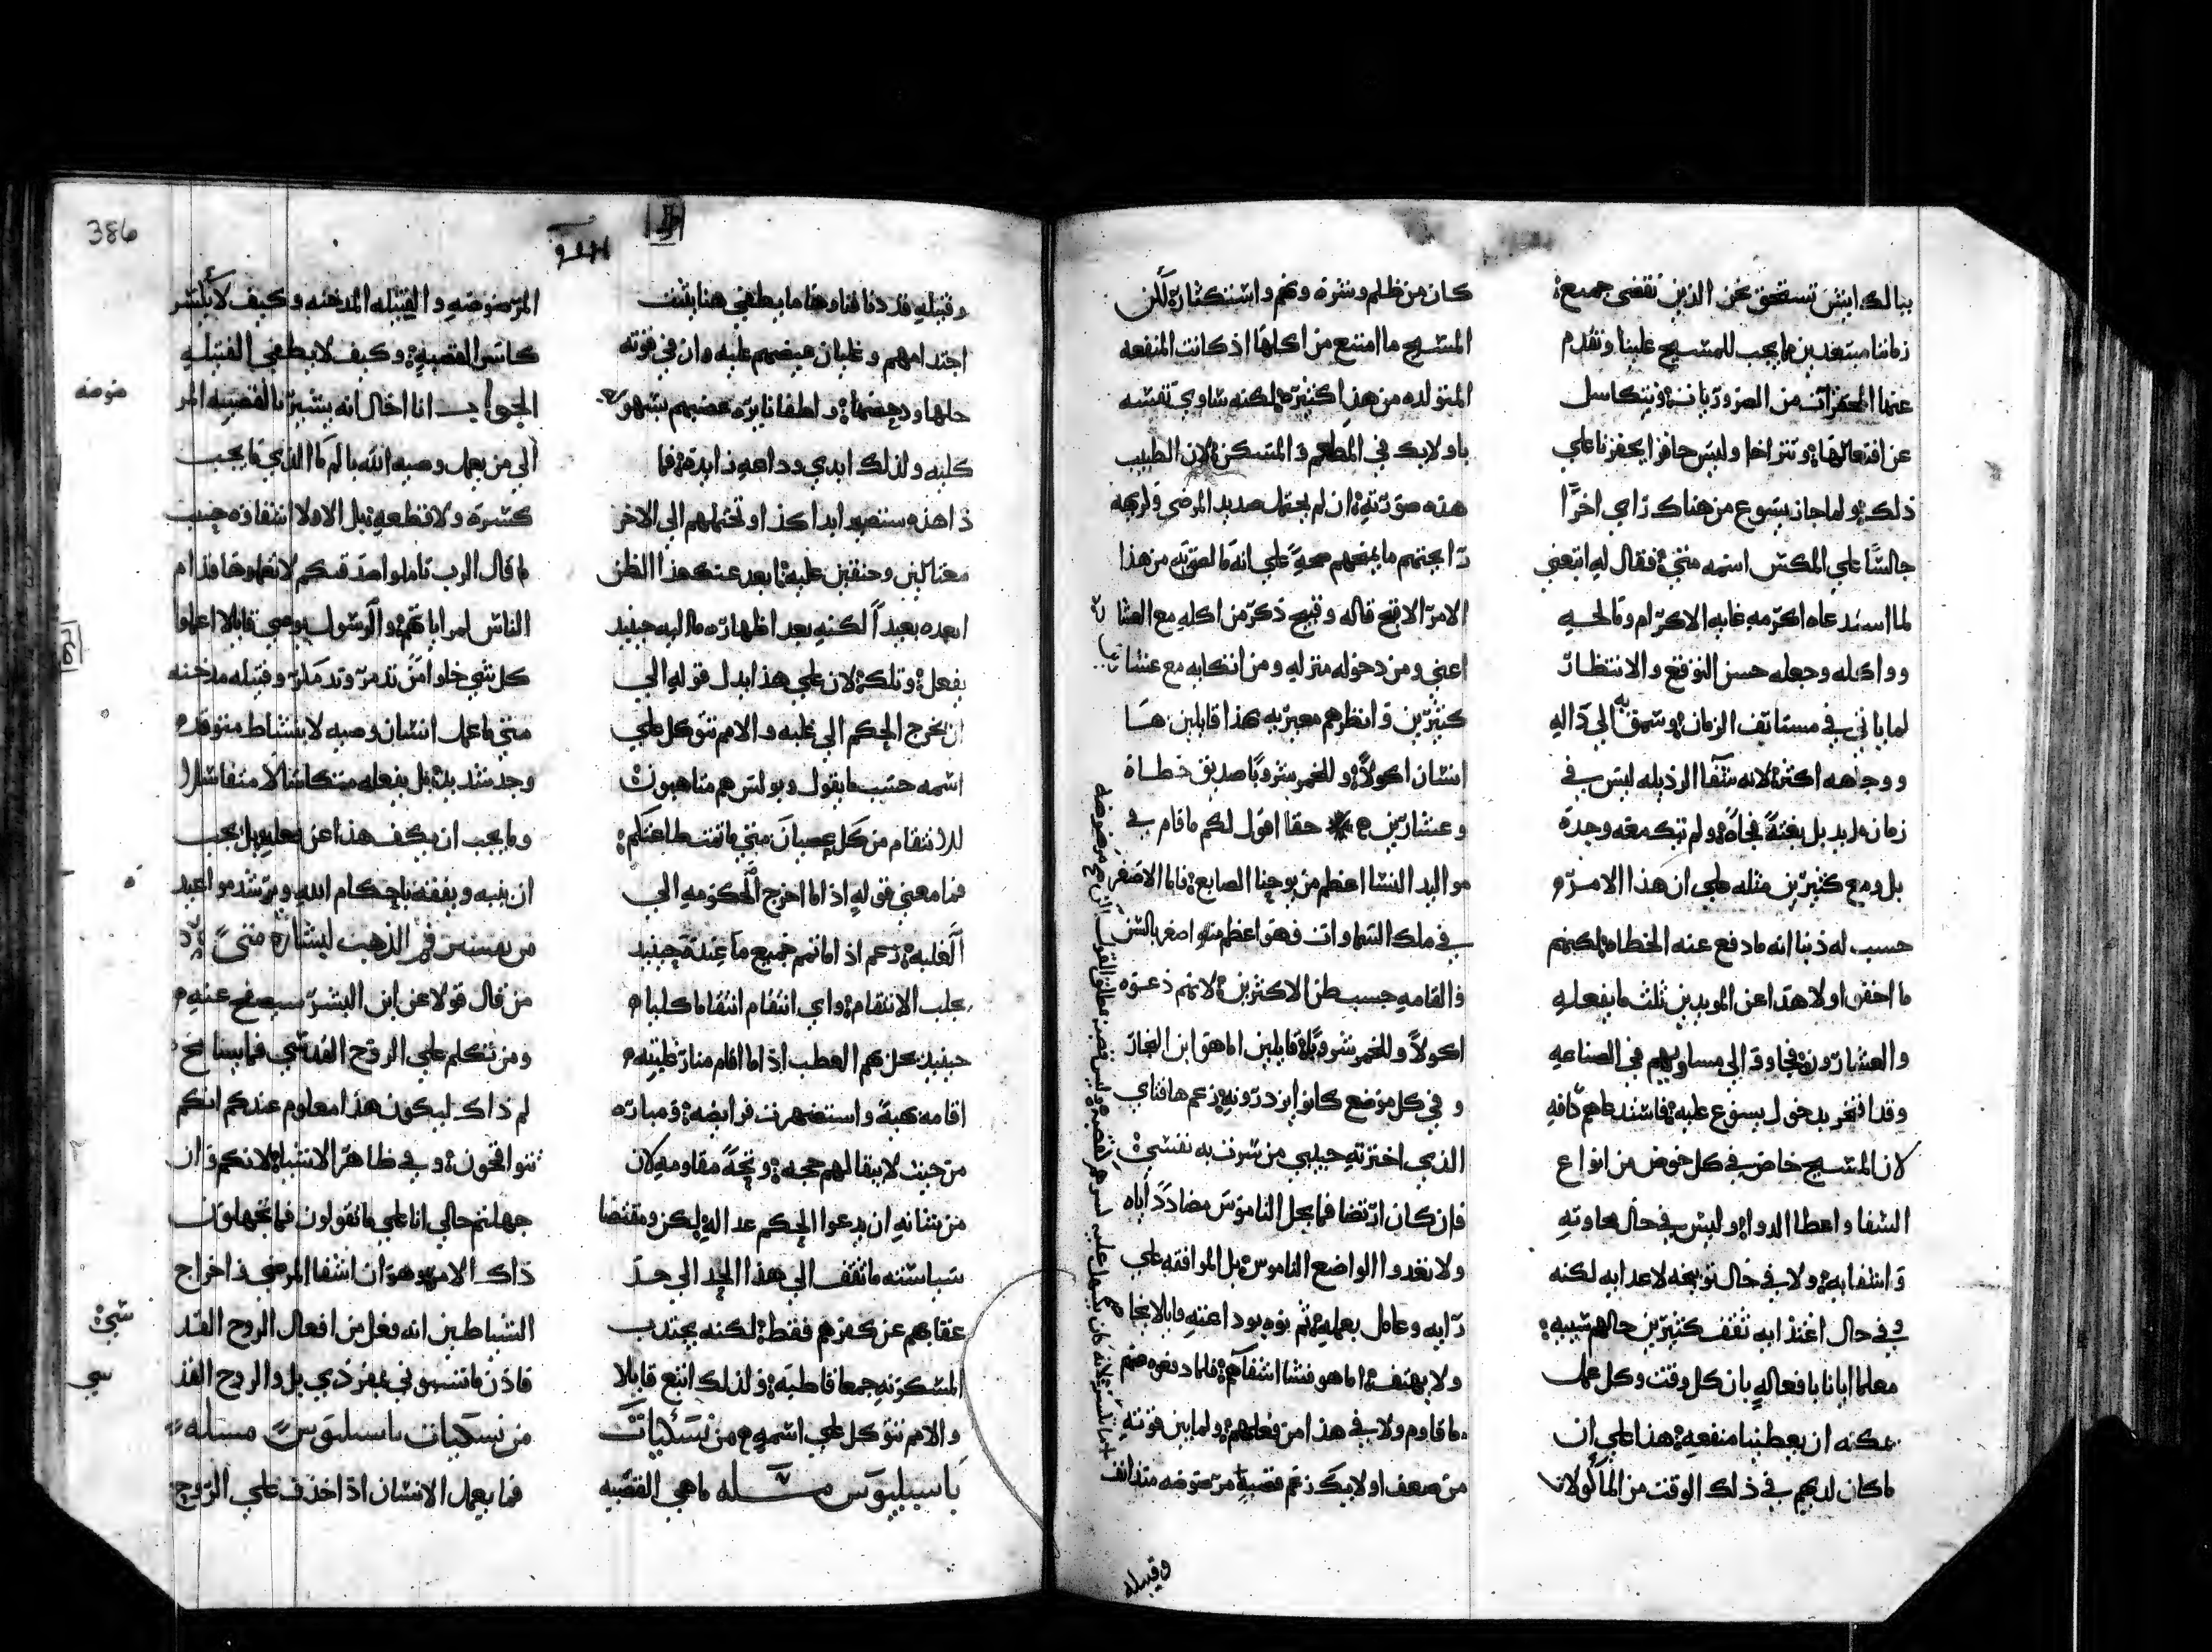 ببالك ايش تستحق نحن الذين نقضي جميع
زماننا مبتعدين مما يجب للمسيح علينا ونقدم
عنها المحقرات من الضروريات ونتكاسل
عن افتعالها ونتراخا وليس حافزا يحفزنا علي
ذلك ولما جاز يسوع من هناك راي اخرا
جالسا علي المكس اسمه متي فقال له اتبعني
لما استدعاه اكرمه غايه الاكرام ومالحه
وواكله وجعله حسن التوقع والانتظار
لما ياتي في مستانف الزمان وسمق به الي داله
ووجاهه اكثر لانه شفا الرذيله ليس في
زمان مديد بل بغتة فجاة ولم تتكمعه وحده
بل ومع كثيرين مثله علي ان هذا الامر
حسب له ذنبا انه ما دفع عنه الخطاه لكنهم
ما اخفوا ولا هذا عن المويدين ثلث ما يفعله
والعشارون فجاوا الي مساويهم في الصناعه
وقد افتخر بدخول يسوع عليه فاستدعاهم كافه
لان المسيح خاض في كل خوض من انواع
الشفا واعطا الدوا وليس في حال محاوته
واشفايه ولا في حال توبيخه لاعدايه لكنه
وفي حال اغتذايه ثقف كثيرين حالهم سييه
معلما ايانا بافعاله بان كل وقت وكل عمل
يمكنه ان يعطينا منفعه هذا علي ان
ما كان لديهم في ذلك الوقت من الماكولات
كان من ظلم وشره ونهم واستكثار لكن
المسيح ما امتنع من اكلها اذ كانت المنفعه
المتولده من هذا كثيرة لكنه ساوي نفسه
باولايك في المطعم والمسكن لان الطبيب
هذه صورته ان لم يحتمل صديد المرضي وكريه
رايحتهم ما يمنحهم صحة علي انه ما لصق به من هذا
الامر الاقبح قاله وقبيح ذكر من اكله مع العشارين
اعني ومن دخوله منزله ومن اتكايه مع عشارين
كثيرين وانظرهم معيريه بهذا قايلين ها
انسان اكولا وللخمر شروبا صديق خطاة
وعشارين حقا اقول لكم ما قام في
مواليد النسا اعظم من يوحنا الصابغ فاما الاصغر
في ملك السماوات فهو اعظم منه اصغر بالسن
والقامه حسب ظن الاكثرين لانهم دعوه
اكولا وللخمر شروبا قايلين اما هو ابن النجار
وفي كل موضع كانوا يزدرونه زعم ها فتاي
الذي اخترته حبيبي من سرت به نفسي
فان كان ارتضا فما يحل الناموس مضاددا اباه
ولا نغدوا الواضع الناموس بل الموافقه علي
رايه وعامل بعمله ثم نوه بوداعته قايلا لا يخاصم
ولا يهتف اما هو فشا اشفاهم فلما دفعوه عنهم
ما قاوم ولا في هذا من فعلهم ولما بين قوته
من ضعف اولايك زعم قصبة مرضوضه متدانف
وقبيله
386
وقتيله قد دنا فناوها ما يطفي هنا يثبت
اجتدامهم وغليان غيضهم عليه وان في قوته
حلها ودحضها واطفا نايره غضبهم بسهوله
كليه ولذلك ابدي وداعه زايدة فما
ذا هذه ستصير ابدا كذا وتحتملهم الي الاخر
مغتالين وحنقين عليه ابعد عنك هذا الظن
ابعده بعيدا لكنه بعد اظهاره ماله حينيد
يفعل وتلك لان علي هذا يدل قوله الي
ان يخرج الحكم الي غلبه والامم تتوكل علي
اسمه حسب ما يقول وبولس هم متاهبون
للانتقام من كل عصيان متي ما تمت طاعتكم
فما معني قوله اذ اما اخرج الحكومه الي
الغلبه زعم اذ اما تمم جميع ما عنده حينيد
يجلب الانتقام واي انتقام انتقاما كليا
حينيذ يحل بهم العطب اذا اما اقام منار غلبته
من حيث لا يبقا لهم حجه ونجة مقاومه لان
من شانه ان يدعوا الحكم عداله لكن ومقتضا
سياسته ما تقف الي هذا الحد الي حد
عقابهم عن كفرهم فقط لكنه يجتذب
المسكونه جمعا قاطبه ولذلك اتبع قايلا
والامم تتوكل علي اسمه من نسكيات
باسيليوس مسله ما هي القصبه
المرضوضه والفتيله المدخنه وكيف لا يكسر
كاسر القصبه وكيف لا يطفي الفتيله
الجواب انا اخال انه يشير بالقصبه المر
الي من يعمل وصيه الله بالم ما الذي ما يجب
كسره ولا قطعه بل الاولا اشفاوه حسب
ما قال الرب تاملوا صدقتكم لا تعملوها قدام
الناس لمراياتهم والرسول يوصي قايلا اعملوا
كل شي خلوا من تذمر وتدمكر وفتيله مدخنه
متي ما عمل انسان وصيه لا بنشاط متوقد
وجد شديد بل يفعله متكاسلا متفاشلا
وما يجب ان يكف هذا عن فعله بل يجب
ان ينبه ويفقه باحكام الله ويرشد مواعيد
من تفسير في الذهب لبشارة متي
من قال قولا عن ابن البشر سيصفح عنه
ومن تكلم علي الروح القدسي فما يسامح
لم ذاك ليكون هذا معلوم عندكم انكم
تتواقحون وفي ظاهر الاشيا لانكم وان
جهلتم حالي انا علي ما تقولون فما تجهلون
ذاك الامر وهو ان اشفا المرضي واخراج
الشياطين انه فعل من افعال الروح القد
فاذن ما تسبوني بمفردي بل والروح القد
من نسكيات باسيليوس مسله
فما يعمل الانسان اذا اخذف علي الروح